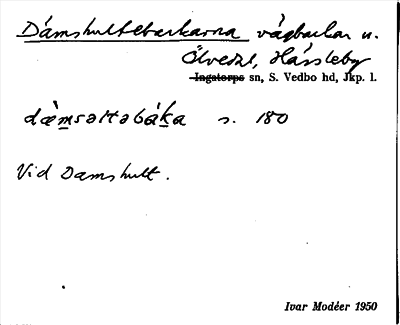 Damshultebackarna vägbackar n.
Ölvedal, Hässleby
Ingatorps sn, S. Vedbo hd, Jkp. l.
dæ̀msəltəbáka s. 180
Vid Damshult.
Ivar Modéer 1950